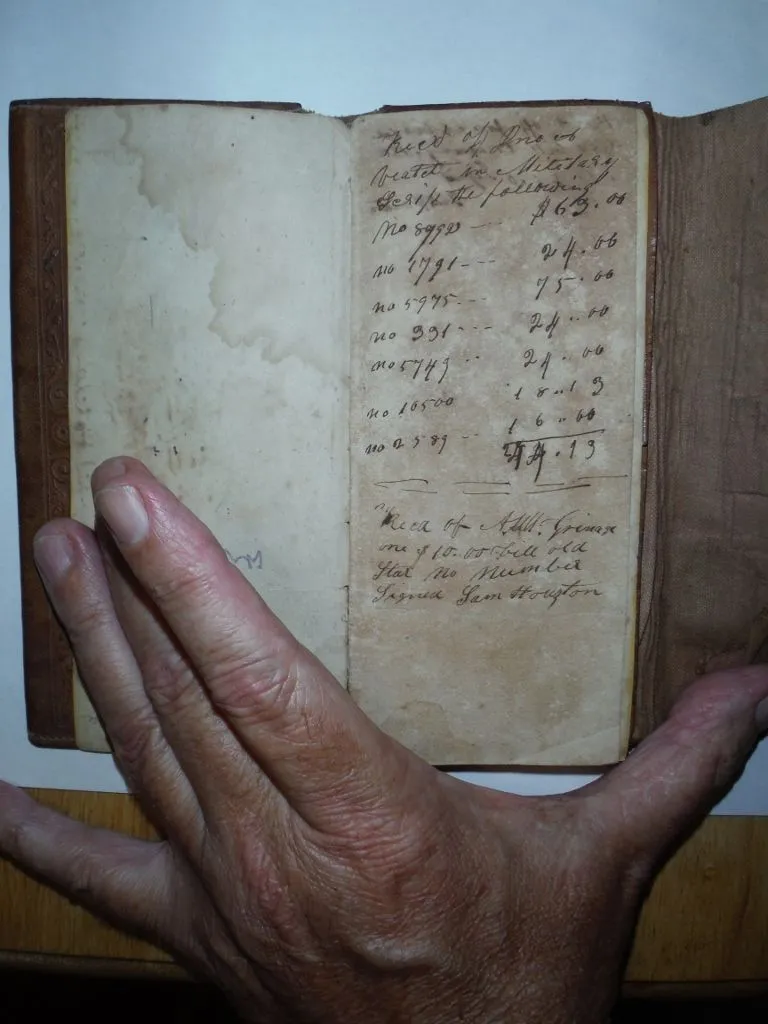 Recd of Jno
in Military
Script the following
No 8992 --- $63.00
no 1791 --- 24.00
no 5975 --- 75.00
no 331 --- 24.00
no 5749 -- 24.00
no 10500 18..13
no 2589 -- 16.00
.13
Recd of
one $10.00 bill old
Star No Number
Signed Sam Houston